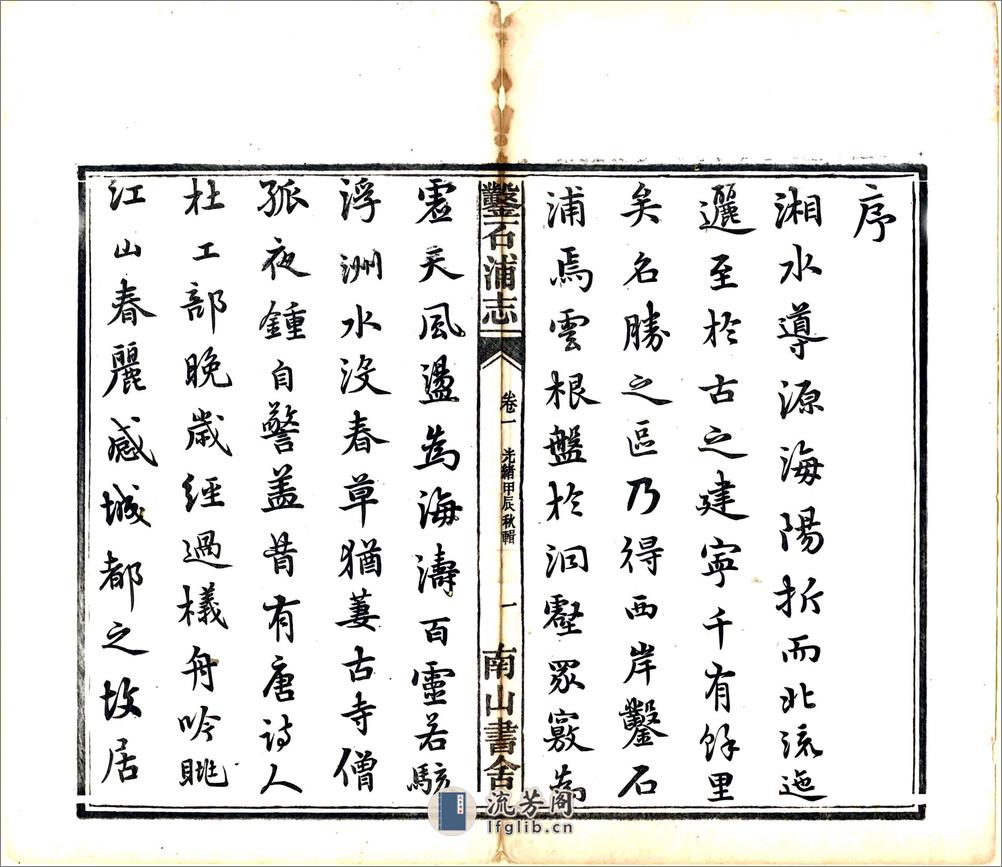 序
湘水導源海陽折而北流迤
邐至於古之建寧千有餘里
矣名勝之區乃得西岸鑿石
浦焉雲根盤於洄壑眾竅為
鑿石浦志
卷一
光緒甲辰秋輯
一
南山書舍
虛天風盪為海濤百靈若駭
浮洲水没春草猶萋古寺僧
孤夜鍾自警盖昔有唐詩人
杜工部晚歲經過檥舟吟眺
江山春麗感城都之故居
流芳阁
lfglib.cn